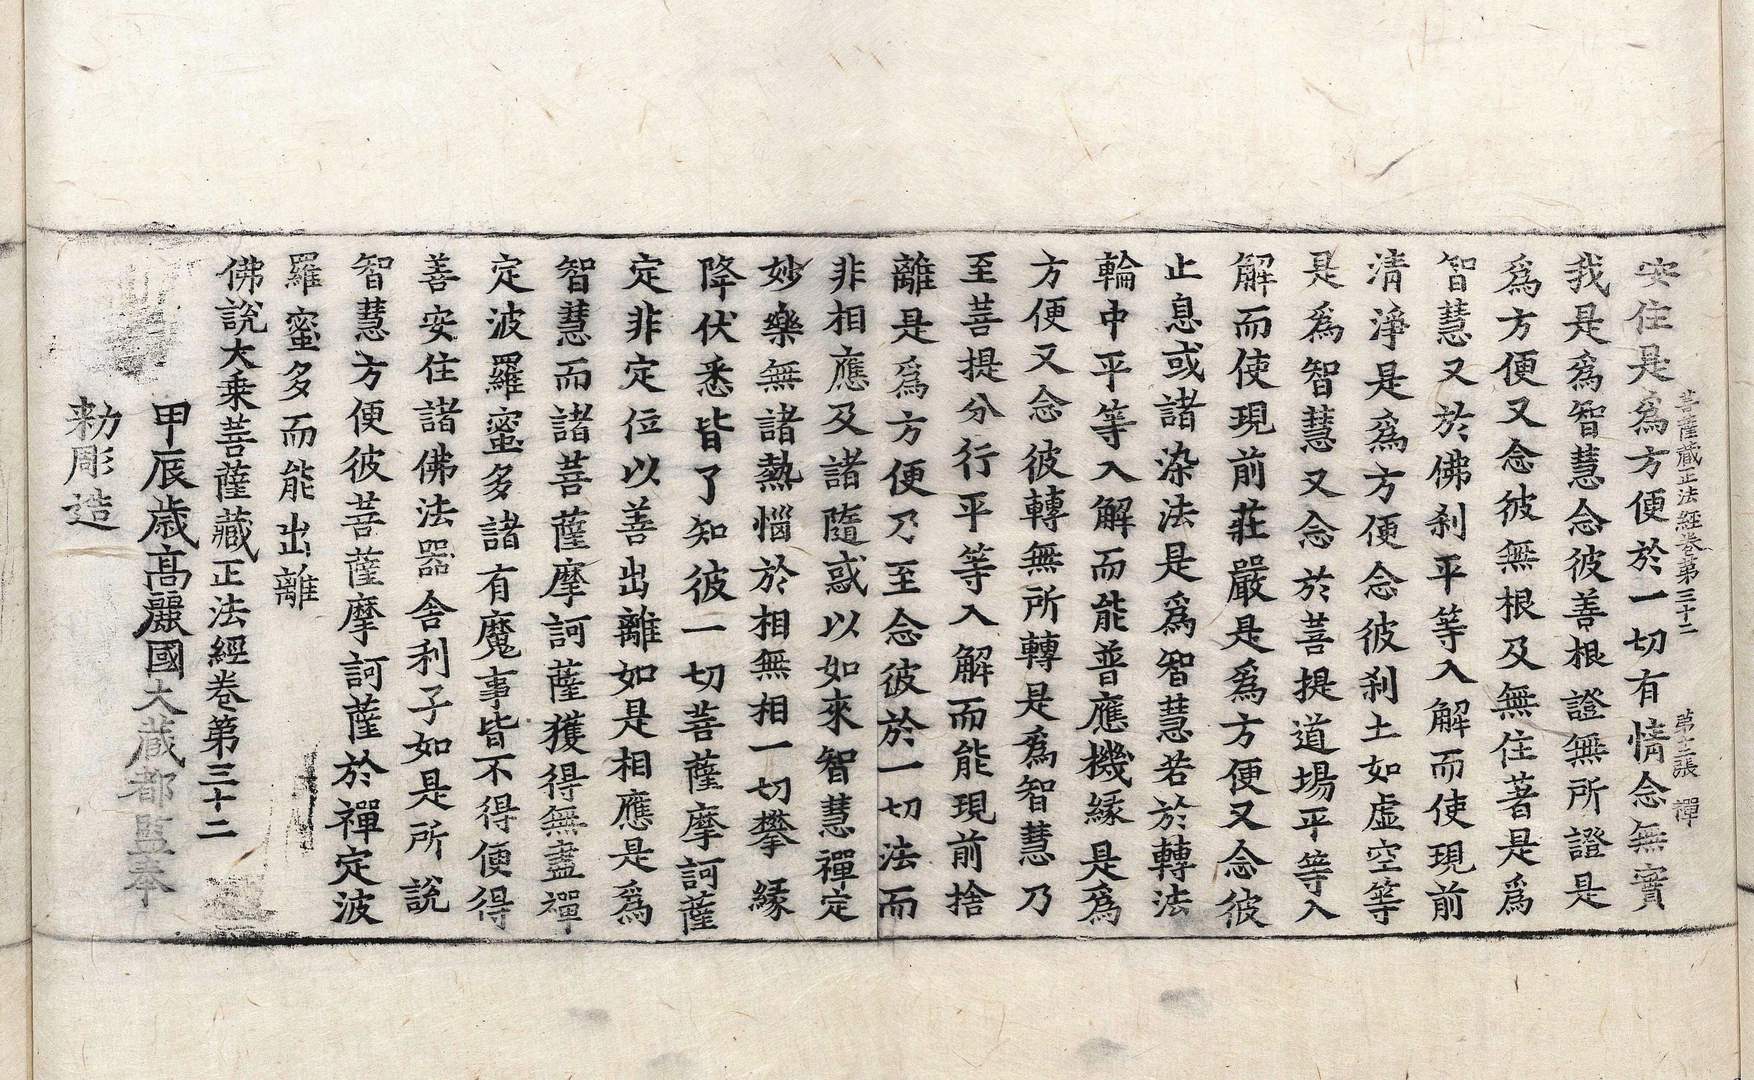 菩薩藏正法經卷第三十二 第十三張 禪
安住是爲方便於一切有情念無實
我是爲智慧念彼善根證無所證是
爲方便又念彼無根及無住著是爲
智慧又於佛刹平等入解而使現前
清淨是爲方便念彼刹土如虛空等
是爲智慧又念於菩提道場平等入
解而使現前莊嚴是爲方便又念彼
止息或諸染法是爲智慧若於轉法
輪中平等入解而能普應機緣是爲
方便又念彼轉無所轉是爲智慧乃
至菩提分行平等入解而能現前捨
離是爲方便乃至念彼於一切法而
非相應及諸隨惑以如來智慧禪定
妙樂無諸熱惱於相無相一切攀緣
降伏悉皆了知彼一切菩薩摩訶薩
定非定位以善出離如是相應是爲
智慧而諸菩薩摩訶薩獲得無盡禪
定波羅蜜多諸有魔事皆不得便得
善安住諸佛法器舍利子如是所說
智慧方便彼菩薩摩訶薩於禪定波
羅蜜多而能出離
佛說大乘菩薩藏正法經卷第三十二
甲辰歲高麗國大藏都監奉
勅彫造